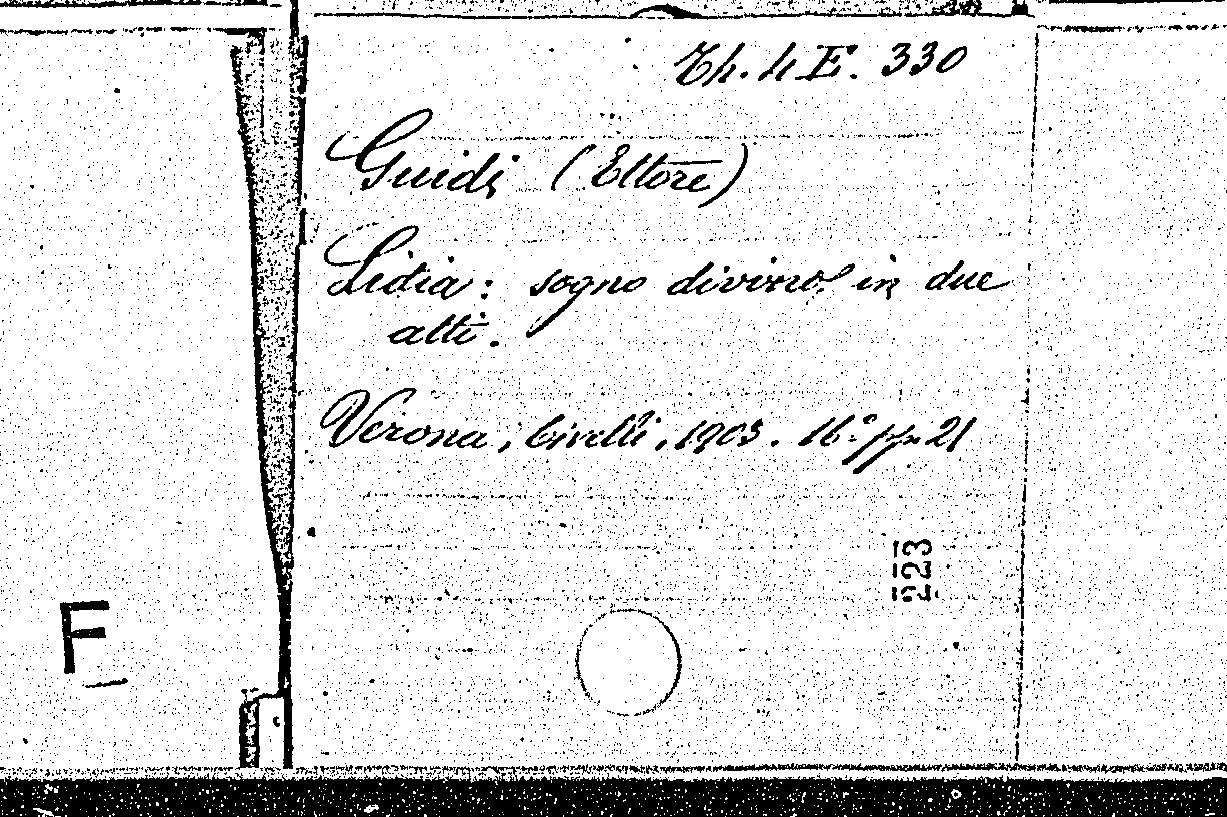 Th. 4 E. 330
Guidi (Ettore)
Lidia: sogno divino! in due
atti.
Verona, Civelli, 1903. 16° pp. 21
223
F